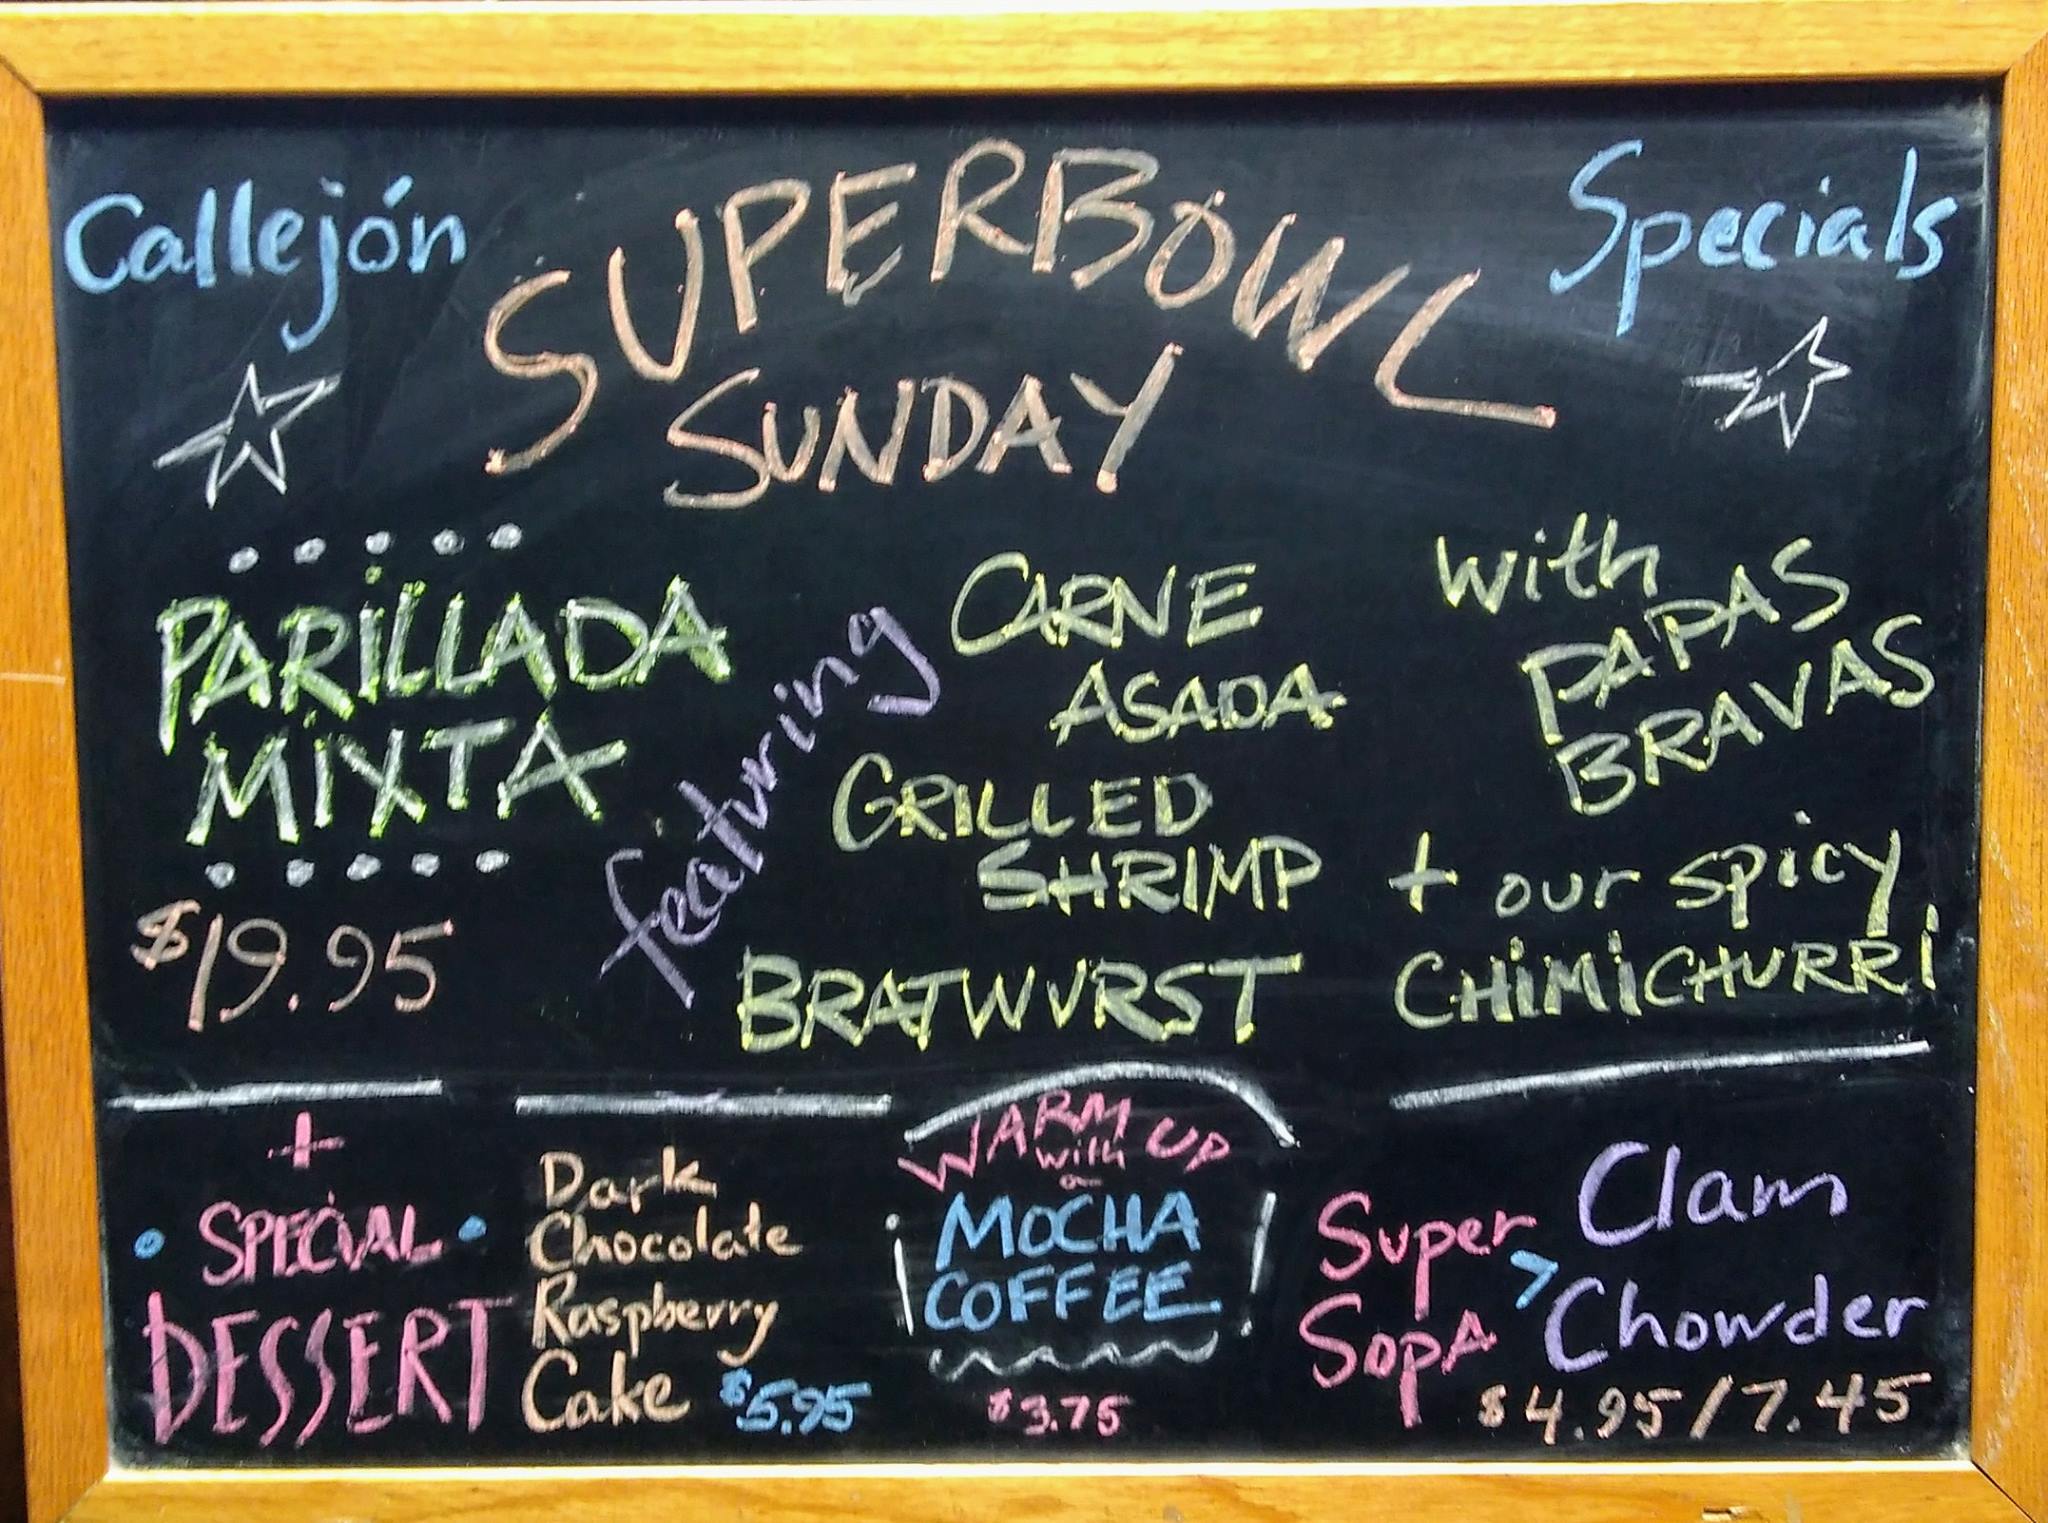 Callejón
SUPERBOWL
SUNDAY
Specials
PARILLADA
MIXTA
$19.95
featuring
CARNE
ASADA
GRILLED
SHRIMP
BRATWURST
with
PAPAS
BRAVAS
+ our spicy
CHIMICHURRI
+
SPECIAL
DESSERT
Dark
Chocolate
Raspberry
Cake $5.95
WARM UP
with
a
MOCHA
COFFEE
$3.75
Super
Sopa
Clam
Chowder
$4.95/7.45